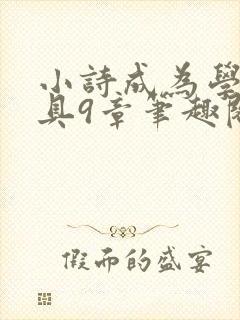 小詩成為學
具9章筆趣閣
假而的盛宴